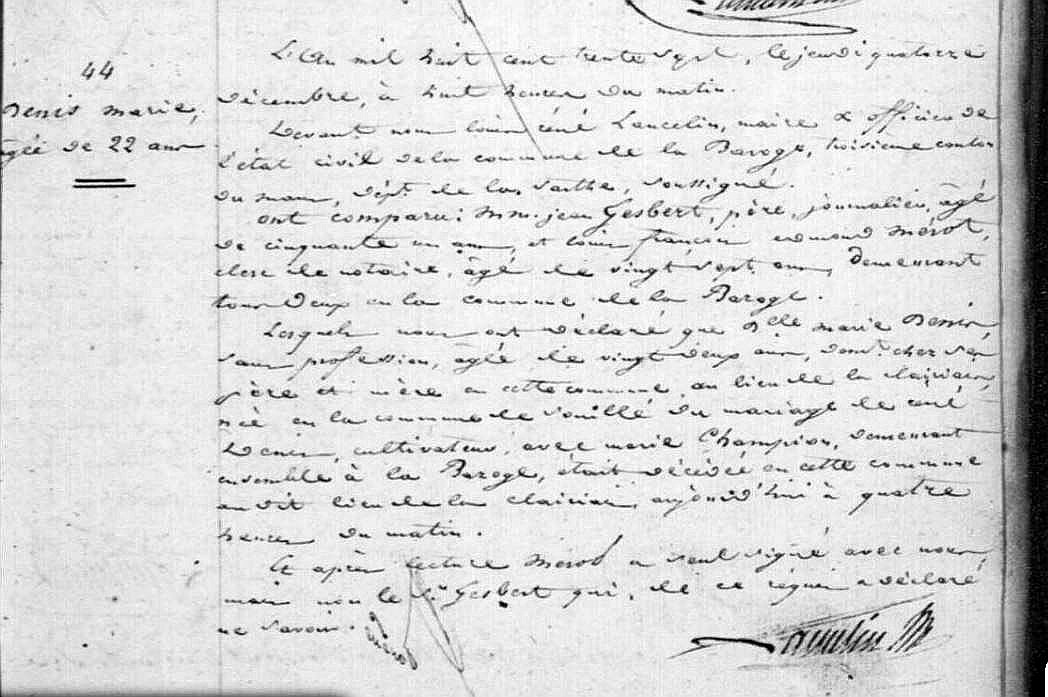 44
Denis Marie,
âgée de 22 ans
L'An mil huit cent trente sept, le jeudi quatorze
décembre, à huit heures du matin.
Devant nous Louis René Lancelin, maire & officier de
l'état civil de la commune de la Bazoge, troisième canton
du mans, dépt. de la Sarthe, soussigné.
ont comparu: MM. jean Gesbert, père, journalier, âgé
de cinquante un ans, et Louis françois edmond Mérot,
clerc de notaire, âgé de vingt sept ans, demeurant
tous deux en la commune de la Bazoge.
Lesquels nous ont déclaré que Dlle marie Denis
sans profession, âgée de vingt deux ans, demt. chez ses
père et mère en cette commune au lieu de la
née en la commune de Souillé du mariage de rené
Denis, cultivateur, avec marie Champion, demeurant
ensemble à la Bazoge, était décédée en cette commune
au dit lieu de la aujourd'hui à quatre
heures du matin.
Et après lecture Mérot a seul signé avec nous
mais non le Sr. Gesbert qui, de ce requis a déclaré
ne savoir.
Lancelin